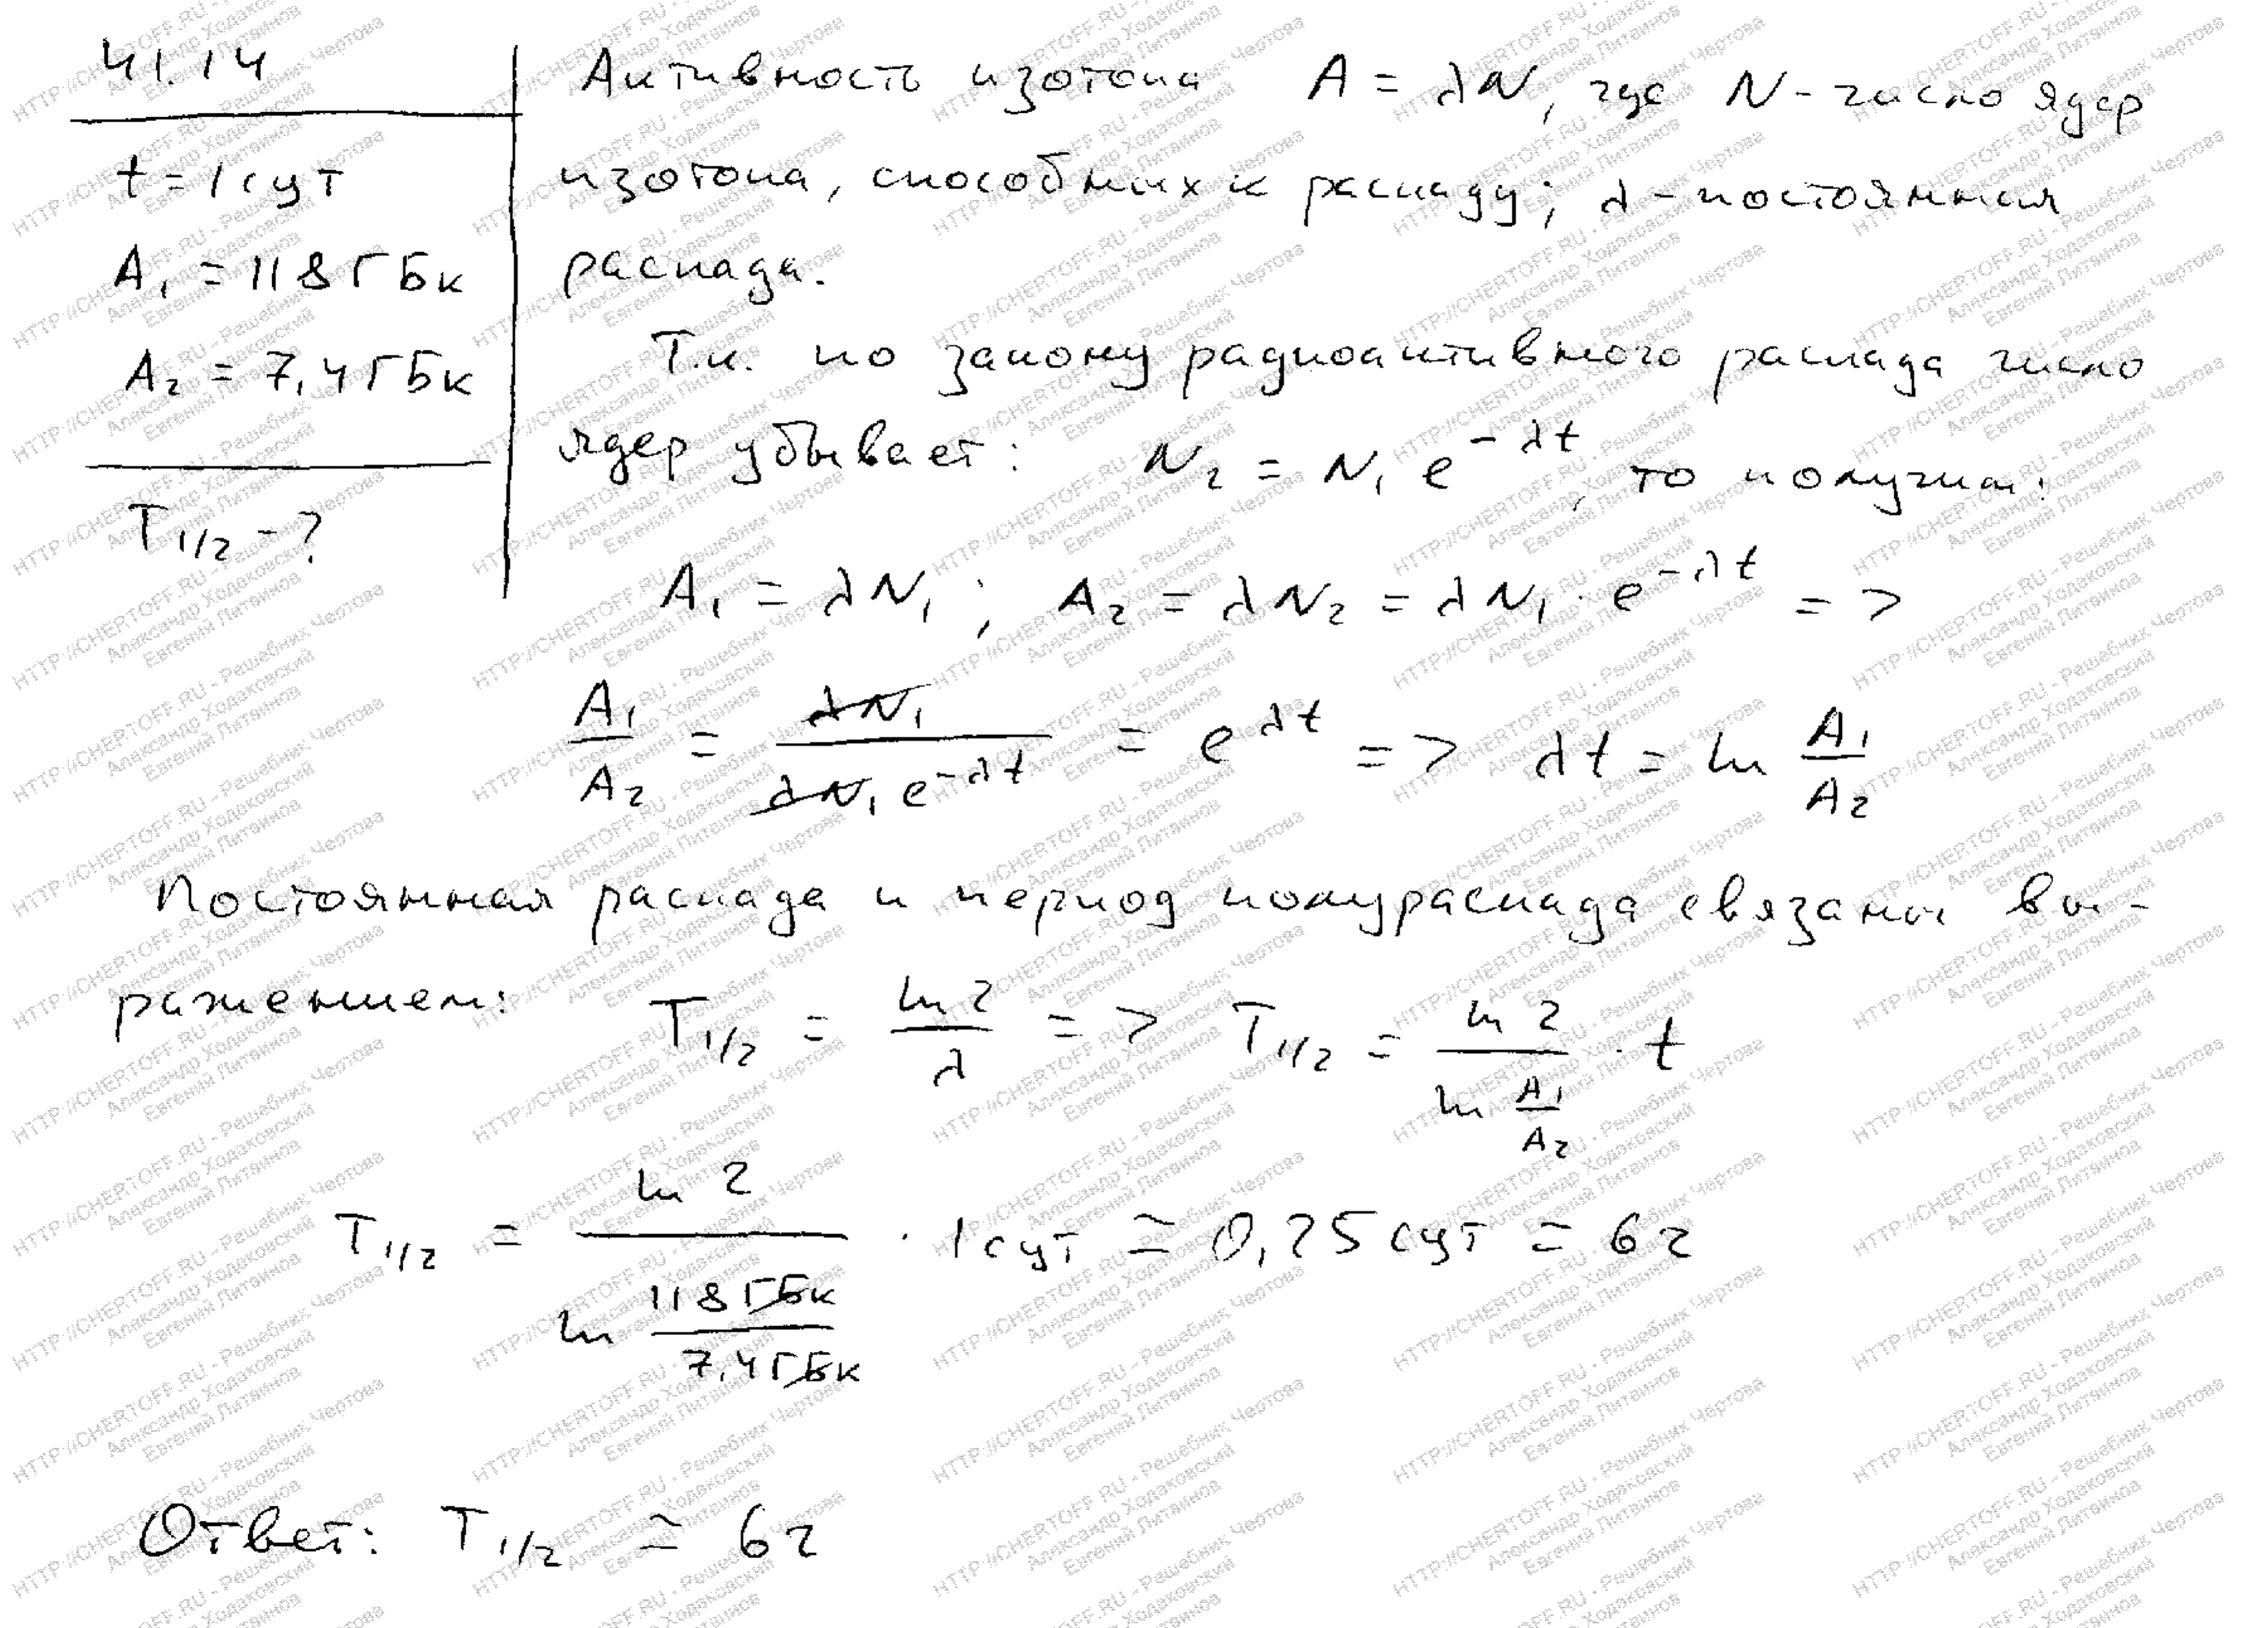 41.14
t = 1 сут
A₁ = 118 ГБк
A₂ = 7,4 ГБк
T₁/₂ - ?
Активность изотопа A = λN, где N - число ядер
изотопа, способных к распаду; λ - постоянная
распада.
Т.к. по закону радиоактивного распада число
ядер убывает: N₂ = N₁ e^(-λt), то получим:
A₁ = λN₁; A₂ = λN₂ = λN₁ · e^(-λt) =>
A₁/A₂ = λN₁/(λN₁ e^(-λt)) = e^(λt) => λt = ln A₁/A₂
Постоянная распада и период полураспада связаны вы-
ражением: T₁/₂ = ln 2/λ => T₁/₂ = ln 2/(ln A₁/A₂) · t
T₁/₂ = ln 2/(ln 118 ГБк/7,4 ГБк) · 1 сут ≅ 0,25 сут = 6 ч
Ответ: T₁/₂ ≅ 6 ч
HTTP://CHERTOFF.RU - Решебник Чертова
Александр Ходаковский
Евгений Литвинов